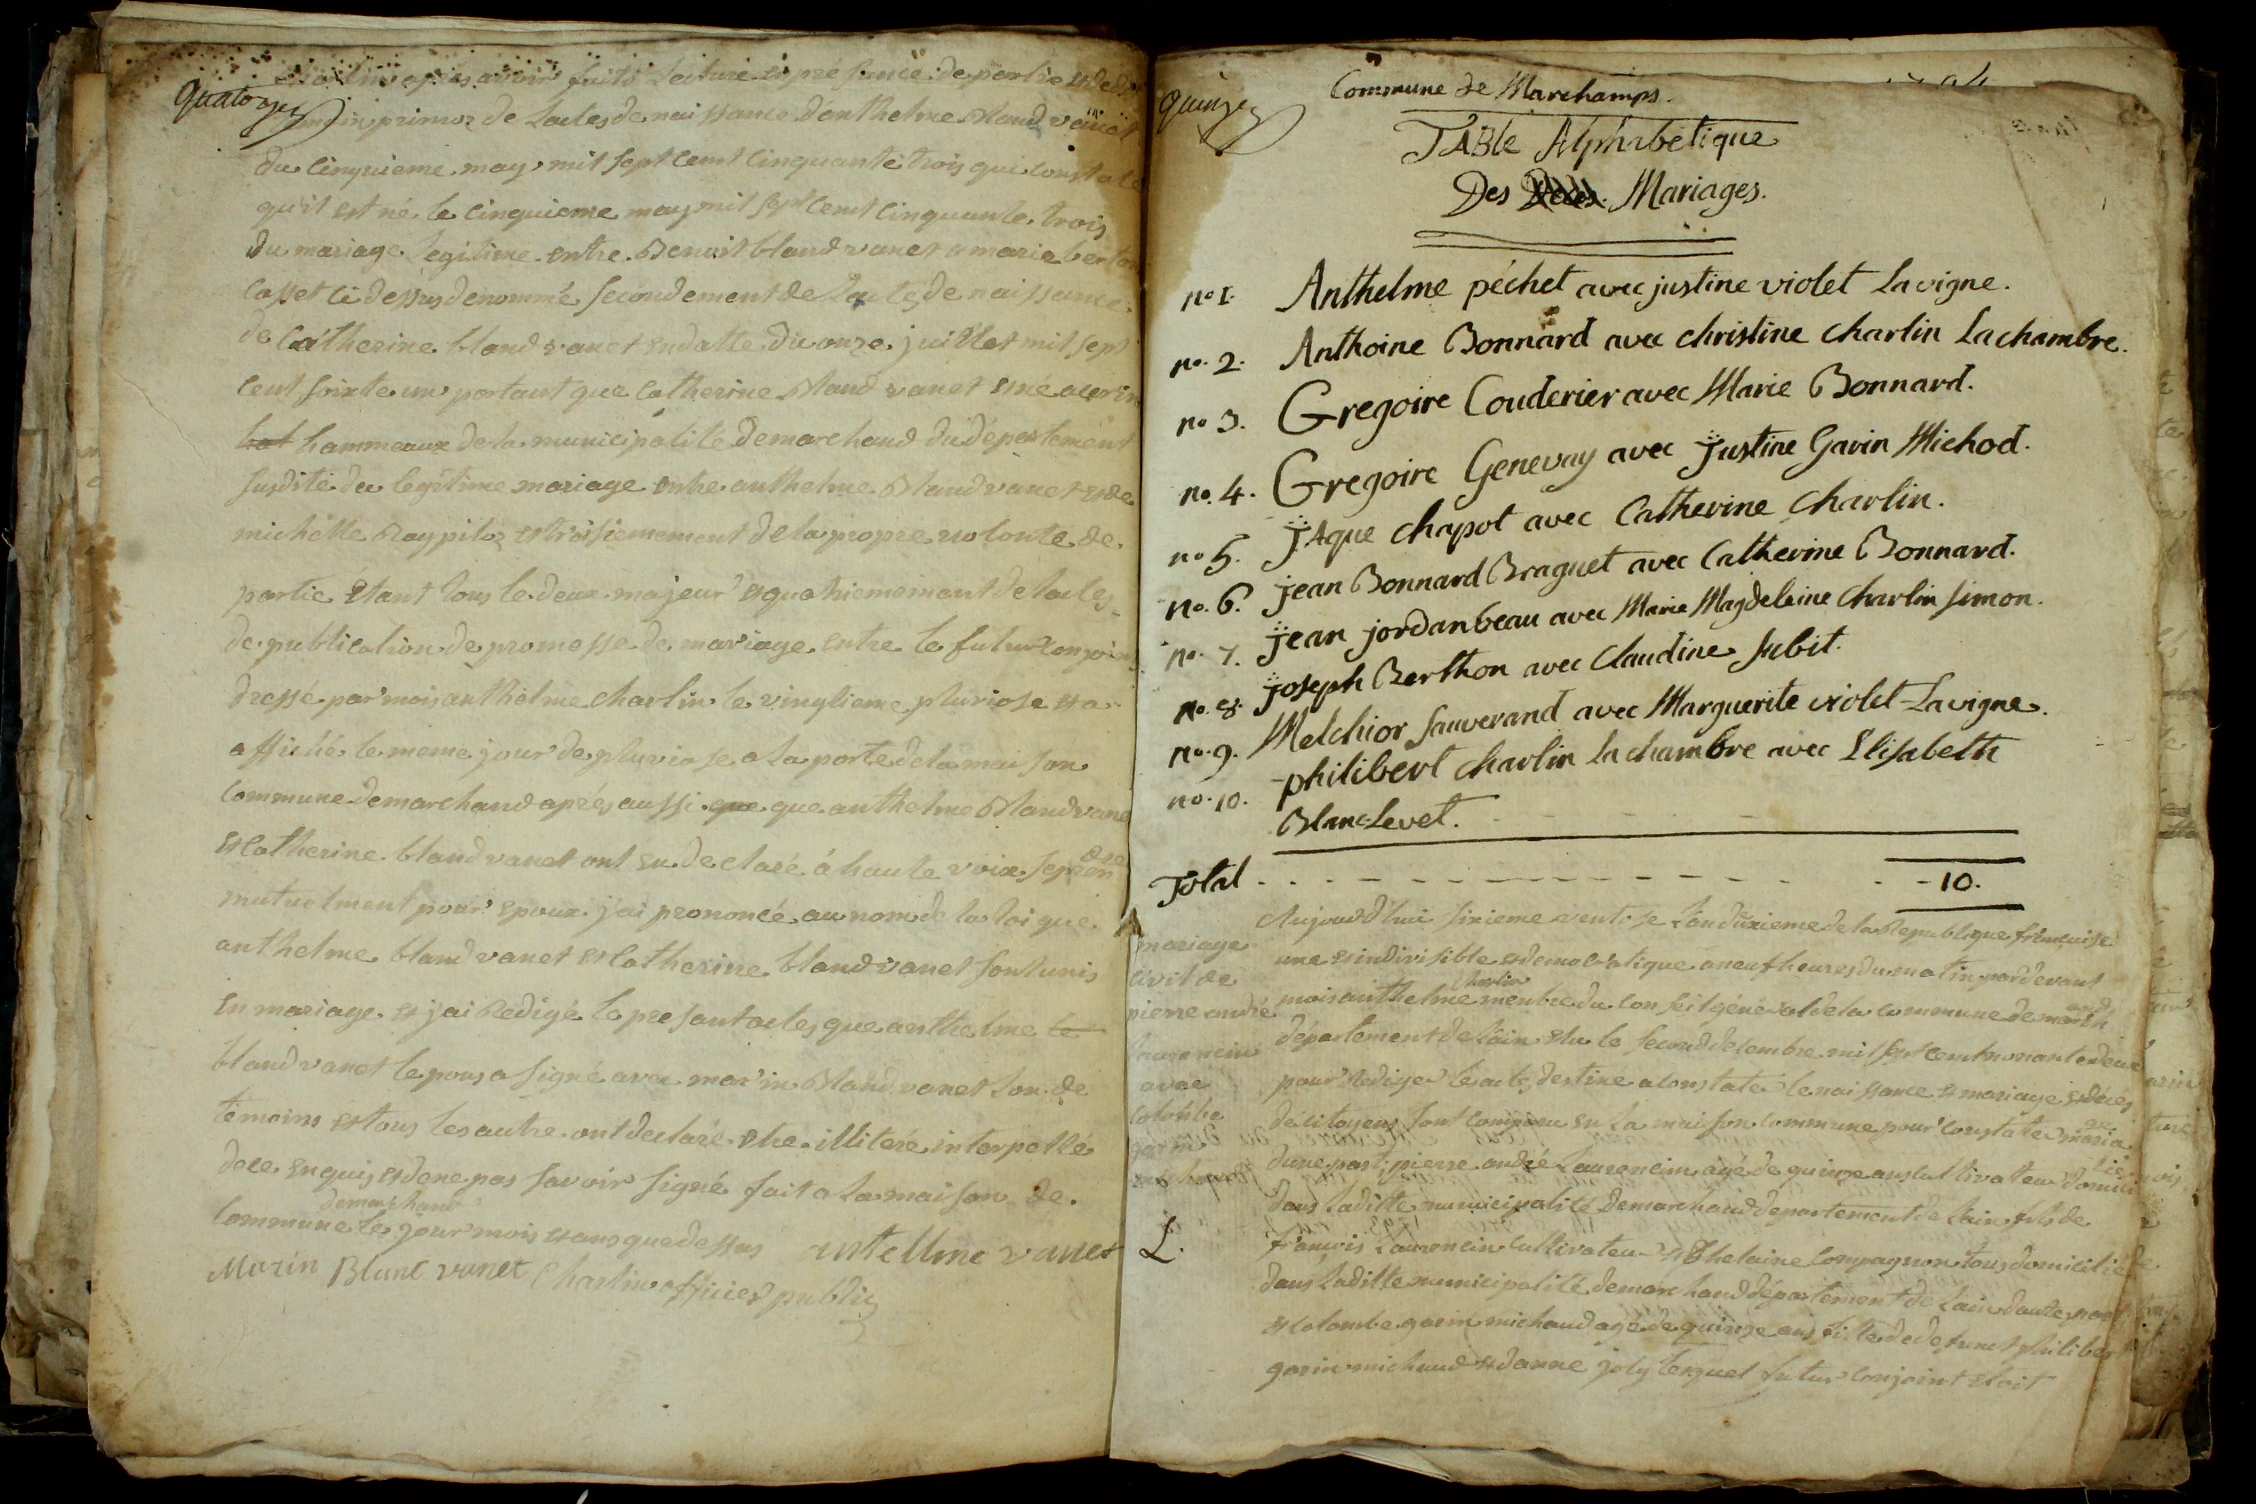 quatorze
après avoir faits lecture en présence de partie et de
primoz de lactes de naissance danthelme bland vanet
du cinquieme may mil sept cent cinquante trois qui constate
qu'il est né le cinquieme may mil sept cent cinquante trois
du mariage legitime entre Benoit bland vanet & marie berton
Casset ci dessus denommé secondement de lactes de naissance
de Catherine bland vanet en datte du onze juillet mil sept
cent soixte un portant que catherine bland vanet est née a
hammeaux de la municipalité demarchand du département
susdite du legitime mariage entre anthelme bland vanet et de
michelle Raypiloz et troisiemement de la propre volonte de
partie étant tous le deux majeur et quatriemement de lactes
de publication de promesse de mariage entre le futur conjoint
dressé par moi anthelme charlin le vingtieme pluviose et a
affiché le meme jour de pluviose a la porte de la maison
Commune demarchand après aussi que que anthelme bland vanet
et Catherine bland vanet ont eu declaré à haute voix se prendre
mutuelment pour epoux j'ai prononcé au nom de la loi que
anthelme bland vanet et Catherine bland vanet sont unis
en mariage et j'ai Redigé le present actes que anthelme le
bland vanet lepoux a signé avec marin bland vanet lun de
temoins et tous les autre ont declaré être illiteré interpellé
de ce enquis et de ne pas savoir signé fait a la maison de
demarchand
Commune le jour mois et ans que dessus antellme vanet
Marin Blanc vanet Charlin officier public
quinze
Commune de Marchamps.
TABle Alphabetique
Des Décès. Mariages.
no 1. Anthelme péchet avec justine violet Lavigne.
no. 2. Anthoine Bonnard avec christine charlin Lachambre.
no 3. Gregoire Couderier avec Marie Bonnard.
no. 4. Gregoire Genevay avec justine Gavin Michod.
no 5. jAque chapot avec Catherine charlin.
no. 6. jean Bonnard Braguet avec Catherine Bonnard.
no. 7. jean jordanbeau avec Marie Magdeleine charlin simon.
no. 8. joseph Berthon avec Claudine subit.
no. 9. Melchior sauverand avec Marguerite violet-Lavigne.
no. 10. philibert charlin Lachambre avec Elisabeth
Blanc Levet.
Total 10.
mariage
civil de
pierre andré
laurencin
avec
Colombe
garin
michaud
L.
Aujourd'hui sixieme ventose l'an deuxieme de la Republique françoise
une et indivisible et democratique a neuf heures du matin par devant
charlin
moi anthelme membre du conseil général de la commune de marchand
département de lain élu le second decembre mil sept cent nonante deux
pour Rediger le acte destiné a constater le naissance et mariage et décés
de citoyens sont comparu en la maison commune pour constater mariage
dune part pierre andré Laurencin agé de quinze ans cultivateur domicilié
dans laditte municipalité demarchand departement de lain fils de
françois Laurencin cultivateur et thelaine Compagnon tous domicilié
dans laditte municipalité demarchand département de lain dautre part
et Colombe garin michaud agé de quinze ans fille de defunct philibert
garin michaud et danne joly terguet futur conjoint étoit